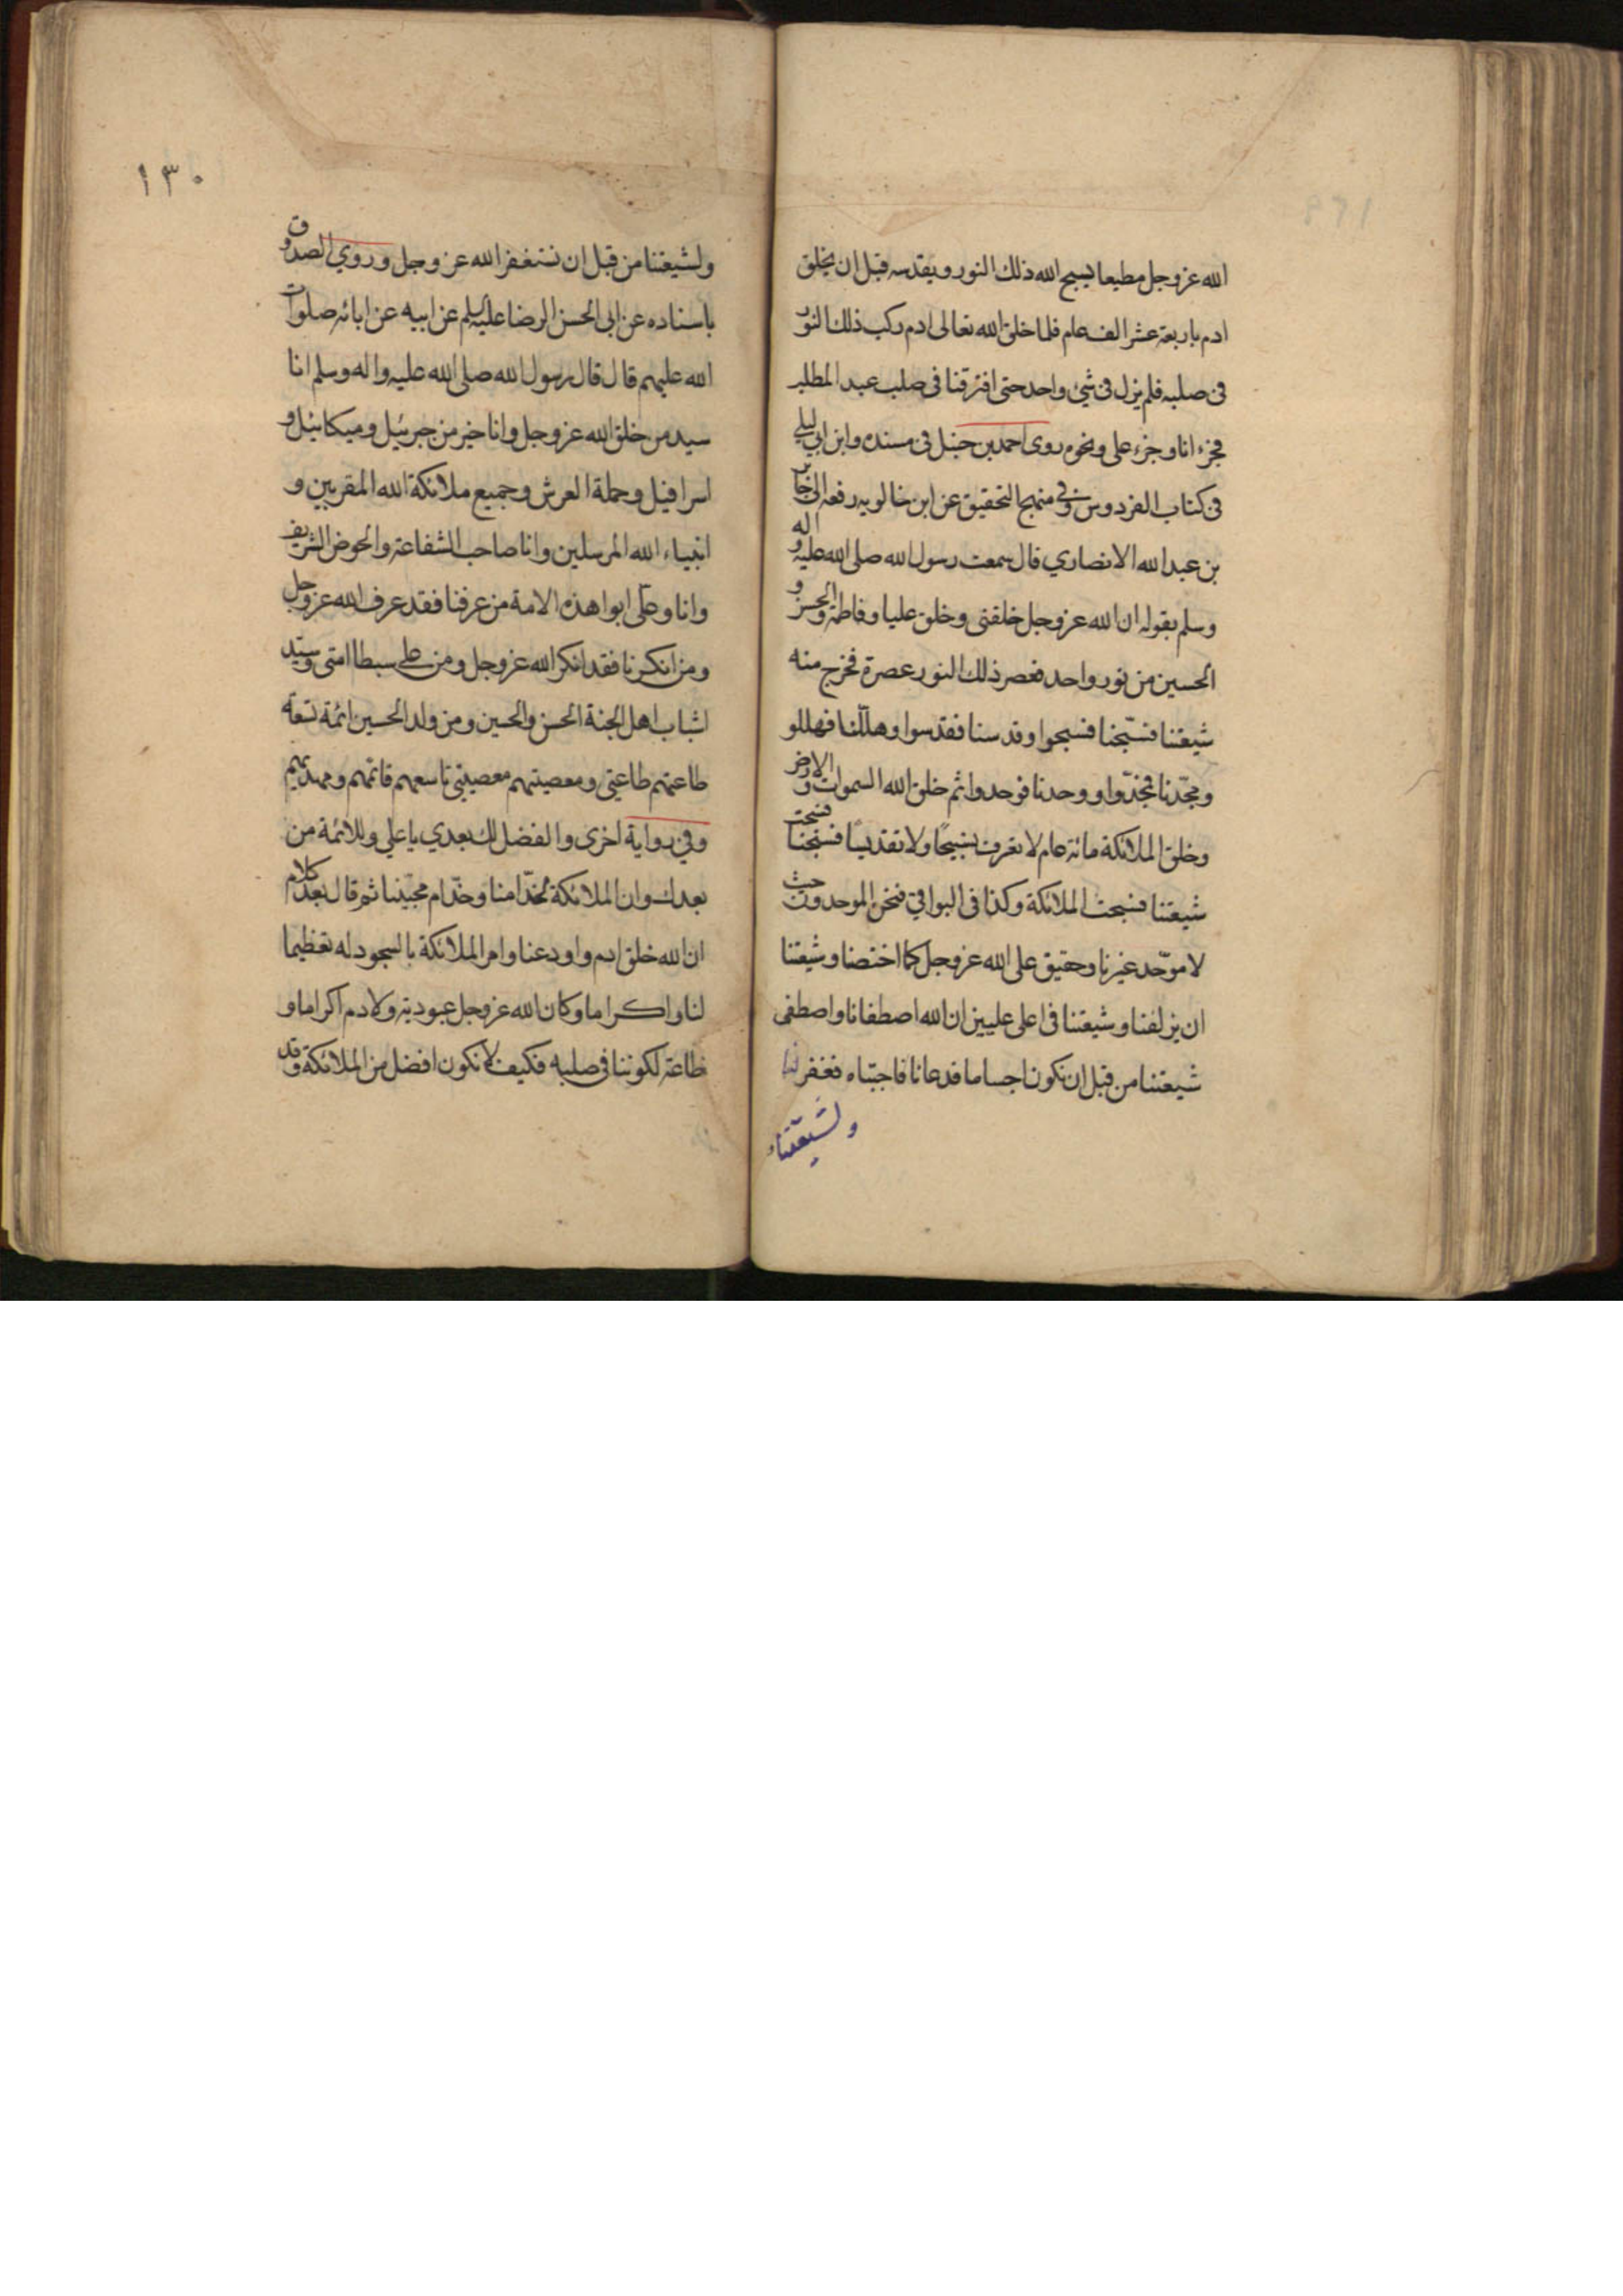 الله عز وجل مطيعا يسبح الله ذلك النور ويقدسه قبل ان يخلق
ادم باربعة عشر الف عام فلما خلق الله تعالى ادم ركب ذلك النور
فى صلبه فلم يزل فى شئ واحد حتى افترقنا فى صلب عبد المطلب
فجزء انا وجزء على ونحوه روى احمد بن حنبل فى مسنده وابن ابي ليلى
فى كتاب الفردوس وفي منهج التحقيق عن ابن خالويه رفعه الى جابر
بن عبد الله الانصاري قال سمعت رسول الله صلى الله عليه واله
وسلم يقول ان الله عز وجل خلقنى وخلق عليا وفاطمة والحسن و
الحسين من نور واحد فعصر ذلك النور عصرة فخرج منه
شيعتنا فسبّحنا فسبحوا وقدسنا فقدسوا وهلّلنا فهللو
ومجّدنا فمجّدوا ووحدنا فوحدوا ثم خلق الله السموات والارض
وخلق الملائكة مائة عام لا تعرف تسبيحًا ولا تقديسًا فسبحنا فسبحت
شيعتنا فسبحت الملائكة وكذا فى البواقي فنحن الموحدون حيث
لا موحّد غيرنا وحقيق على الله عز وجل كما اختصنا وشيعتنا
ان يزلفنا وشيعتنا فى اعلى عليين ان الله اصطفانا واصطفى
شيعتنا من قبل ان نكون اجساما فدعانا فاجبناه فغفر لنا
ولشيعتنا
١٣٠
ولشيعتنا من قبل ان نستغفر الله عز وجل وروي الصدوق
باسناده عن ابى الحسن الرضا عليه السلم عن ابيه عن ابائه صلوات
الله عليهم قال قال رسول الله صلى الله عليه واله وسلم انا
سيد من خلق الله عز وجل وانا خير من جبرئيل وميكائيل و
اسرافيل وحملة العرش وجميع ملائكة الله المقربين و
انبياء الله المرسلين وانا صاحب الشفاعة والحوض الشريف
وانا وعلى ابوا هذه الامة من عرفنا فقد عرف الله عز وجل
ومن انكرنا فقد انكر الله عز وجل ومن على سبطا امتى وسيد
اشباب اهل الجنة الحسن والحسين ومن ولد الحسين ائمة تسعة
طاعتهم طاعتى ومعصيتهم معصيتي تاسعهم قائمهم ومهديهم
وفي رواية اخرى والفضل لك بعدي يا علي وللائمة من
بعدك وان الملائكة لخدّامنا وخدّام محبّينا ثم قال بعد كلام
ان الله خلق ادم واودعنا وامر الملائكة بالسجود له تعظيما
لنا واكراما وكان لله عز وجل عبودية ولادم اكراما و
طاعة لكوننا فى صلبه فكيف لا نكون افضل من الملائكة وقد